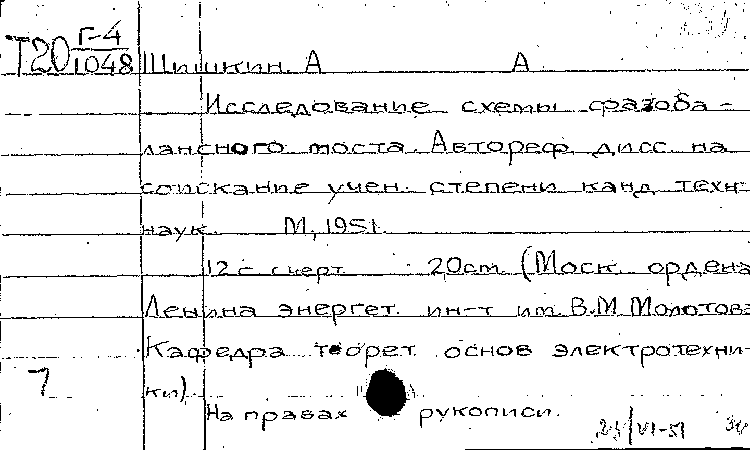 Т20 Г-4/1048 Шишкин. А А
Исследование схемы фазоба-
лансного моста. Автореф. дисс. на
соискание учен. степени канд. техн.
наук. М., 1951.
12 с. с черт. 20 см. (Моск. ордена
Ленина энергет. ин-т им. В.М. Молотова.
Кафедра теорет. основ электротехни-
ки).
На правах рукописи.